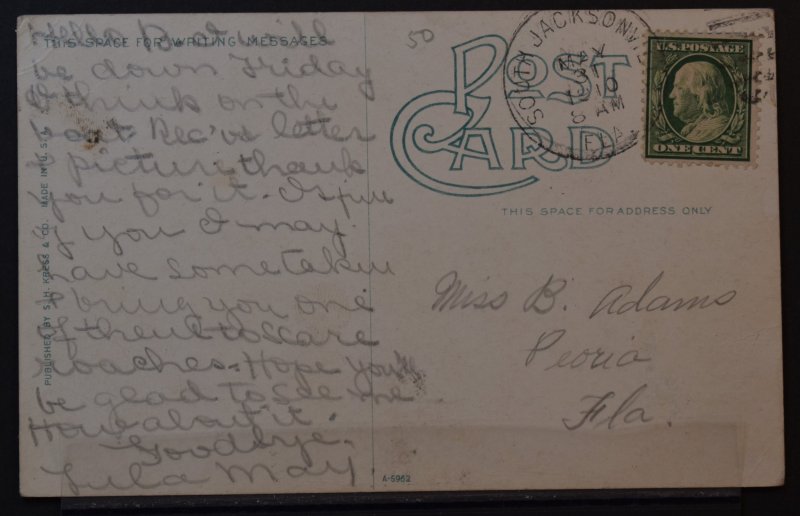 THIS SPACE FOR WRITING MESSAGES
Hello B will
be down Friday
I think on the
boat. Rec've letter
& picture thank
you for it.
if you I may
have some taken
& bring you one
of them to scare
roaches. Hope you'll
be glad to see me
How about it.
Goodbye.
Lula May
PUBLISHED BY S. H. KRESS & CO. MADE IN U. S. A.
A-5962
50
POST
CARD
SOUTH JACKSONVILLE
10
8 AM
FLA.
U.S. POSTAGE
ONE CENT
THIS SPACE FOR ADDRESS ONLY
Miss B. Adams
Peoria
Fla.